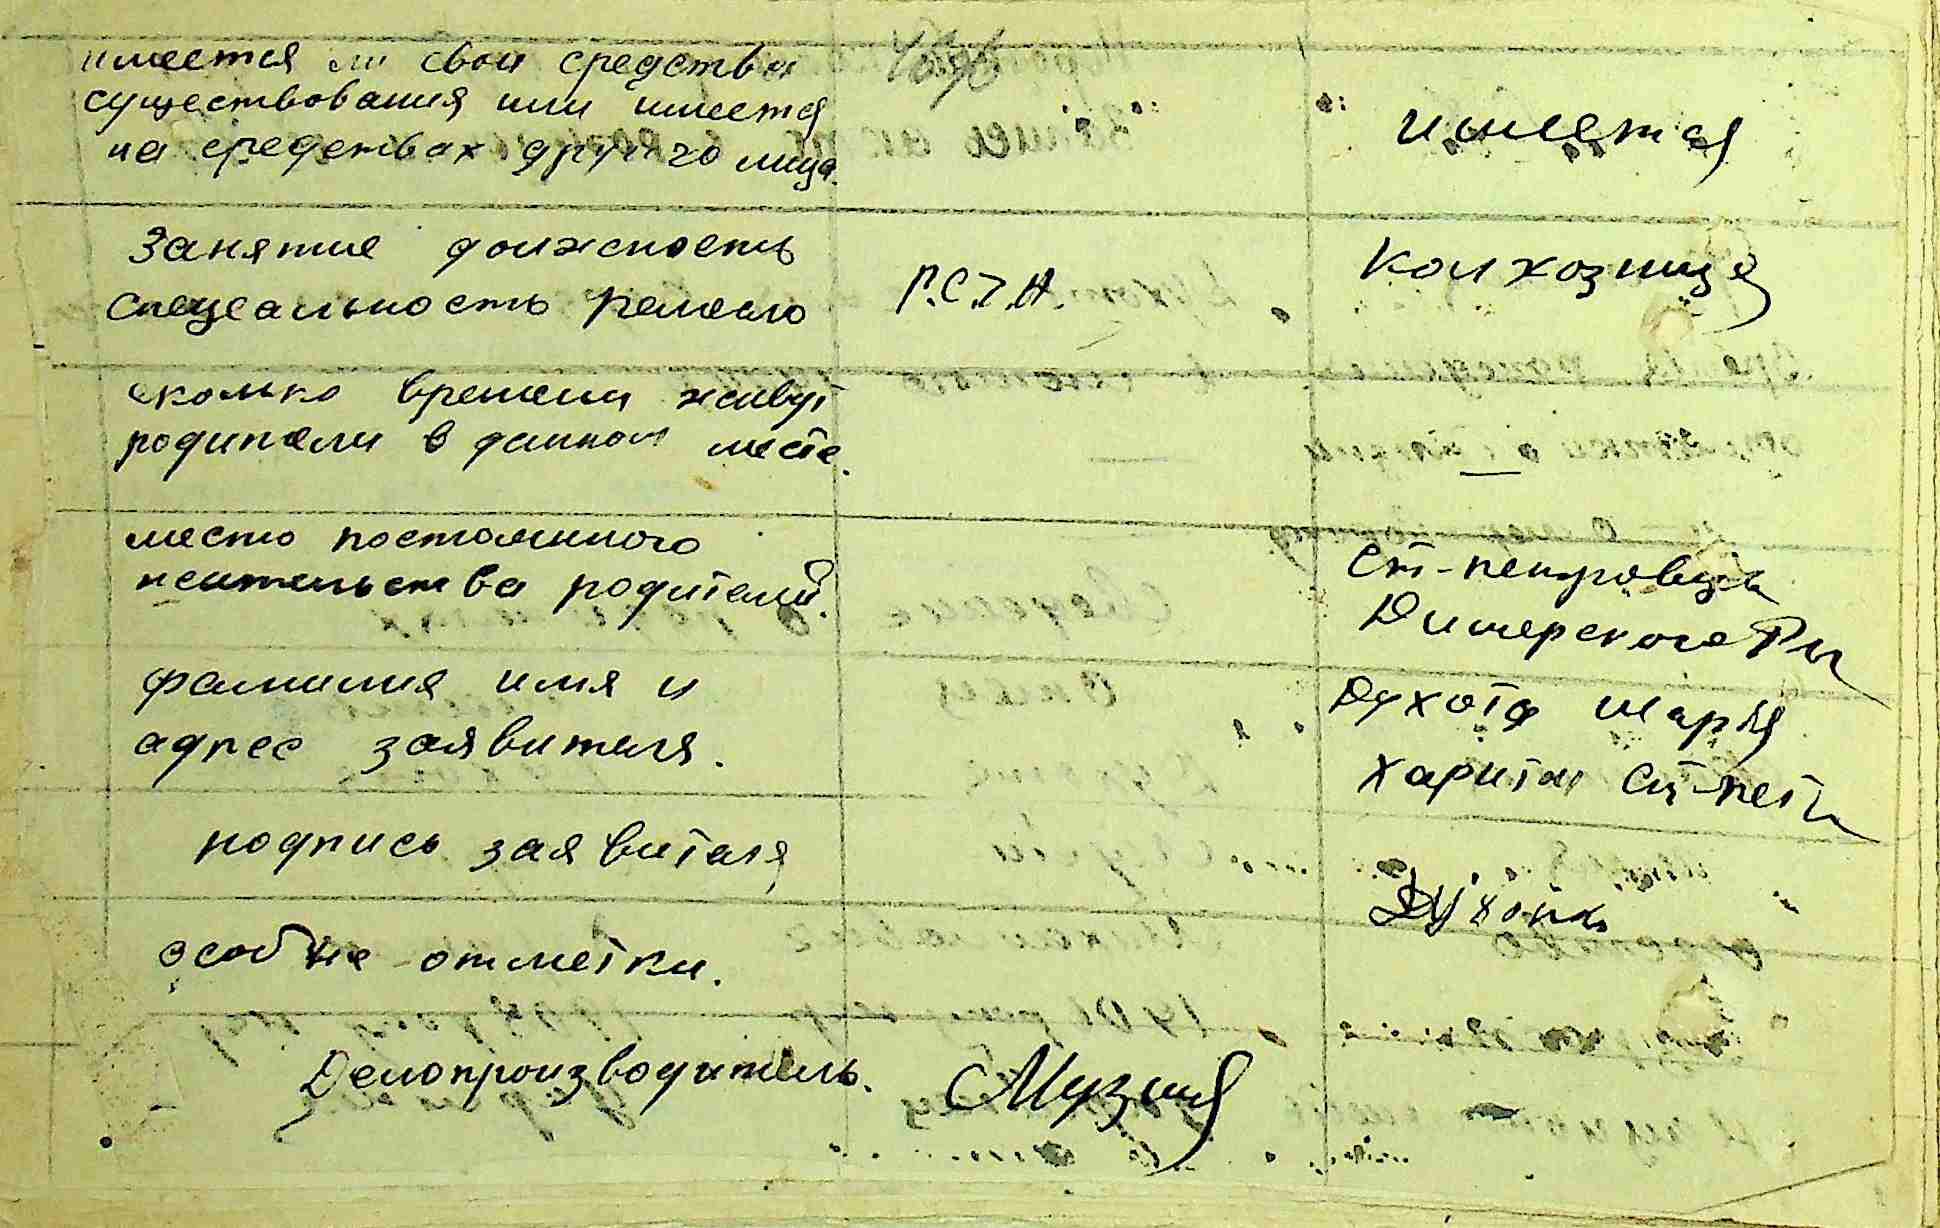 имеется ли свои средства
существования или имеется
на средствах другого лица.
имеется
Занятие должность
специальность ремесло
Р.С.Т.Н.
Колхозница
сколько времени живут
родители в данном месте.
—
—
место постоянного
жительства родителей.
Ст-петровцы
Димерского Р-н
фамилия имя и
адрес заявителя.
Духота Мария
Харитон Ст-пет
подпись заявителя
Духота
особые отметки.
Делопроизводитель.